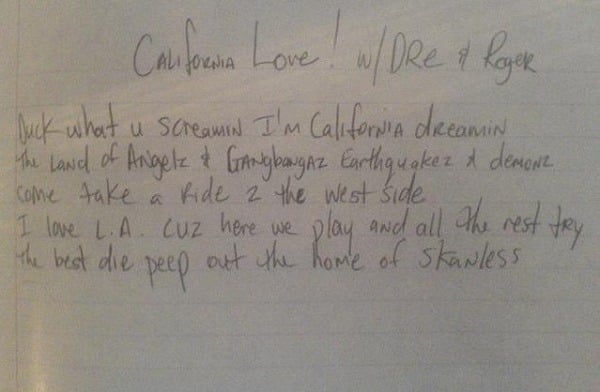 California Love! w/ DRE & Roger
Duck what u screamin I'm California dreamin
the Land of Angelz & GangbangaZ Earthquakez & demonz
come take a Ride 2 the west side
I love L.A. cuz here we play and all the rest try
the best die peep out the home of skanless